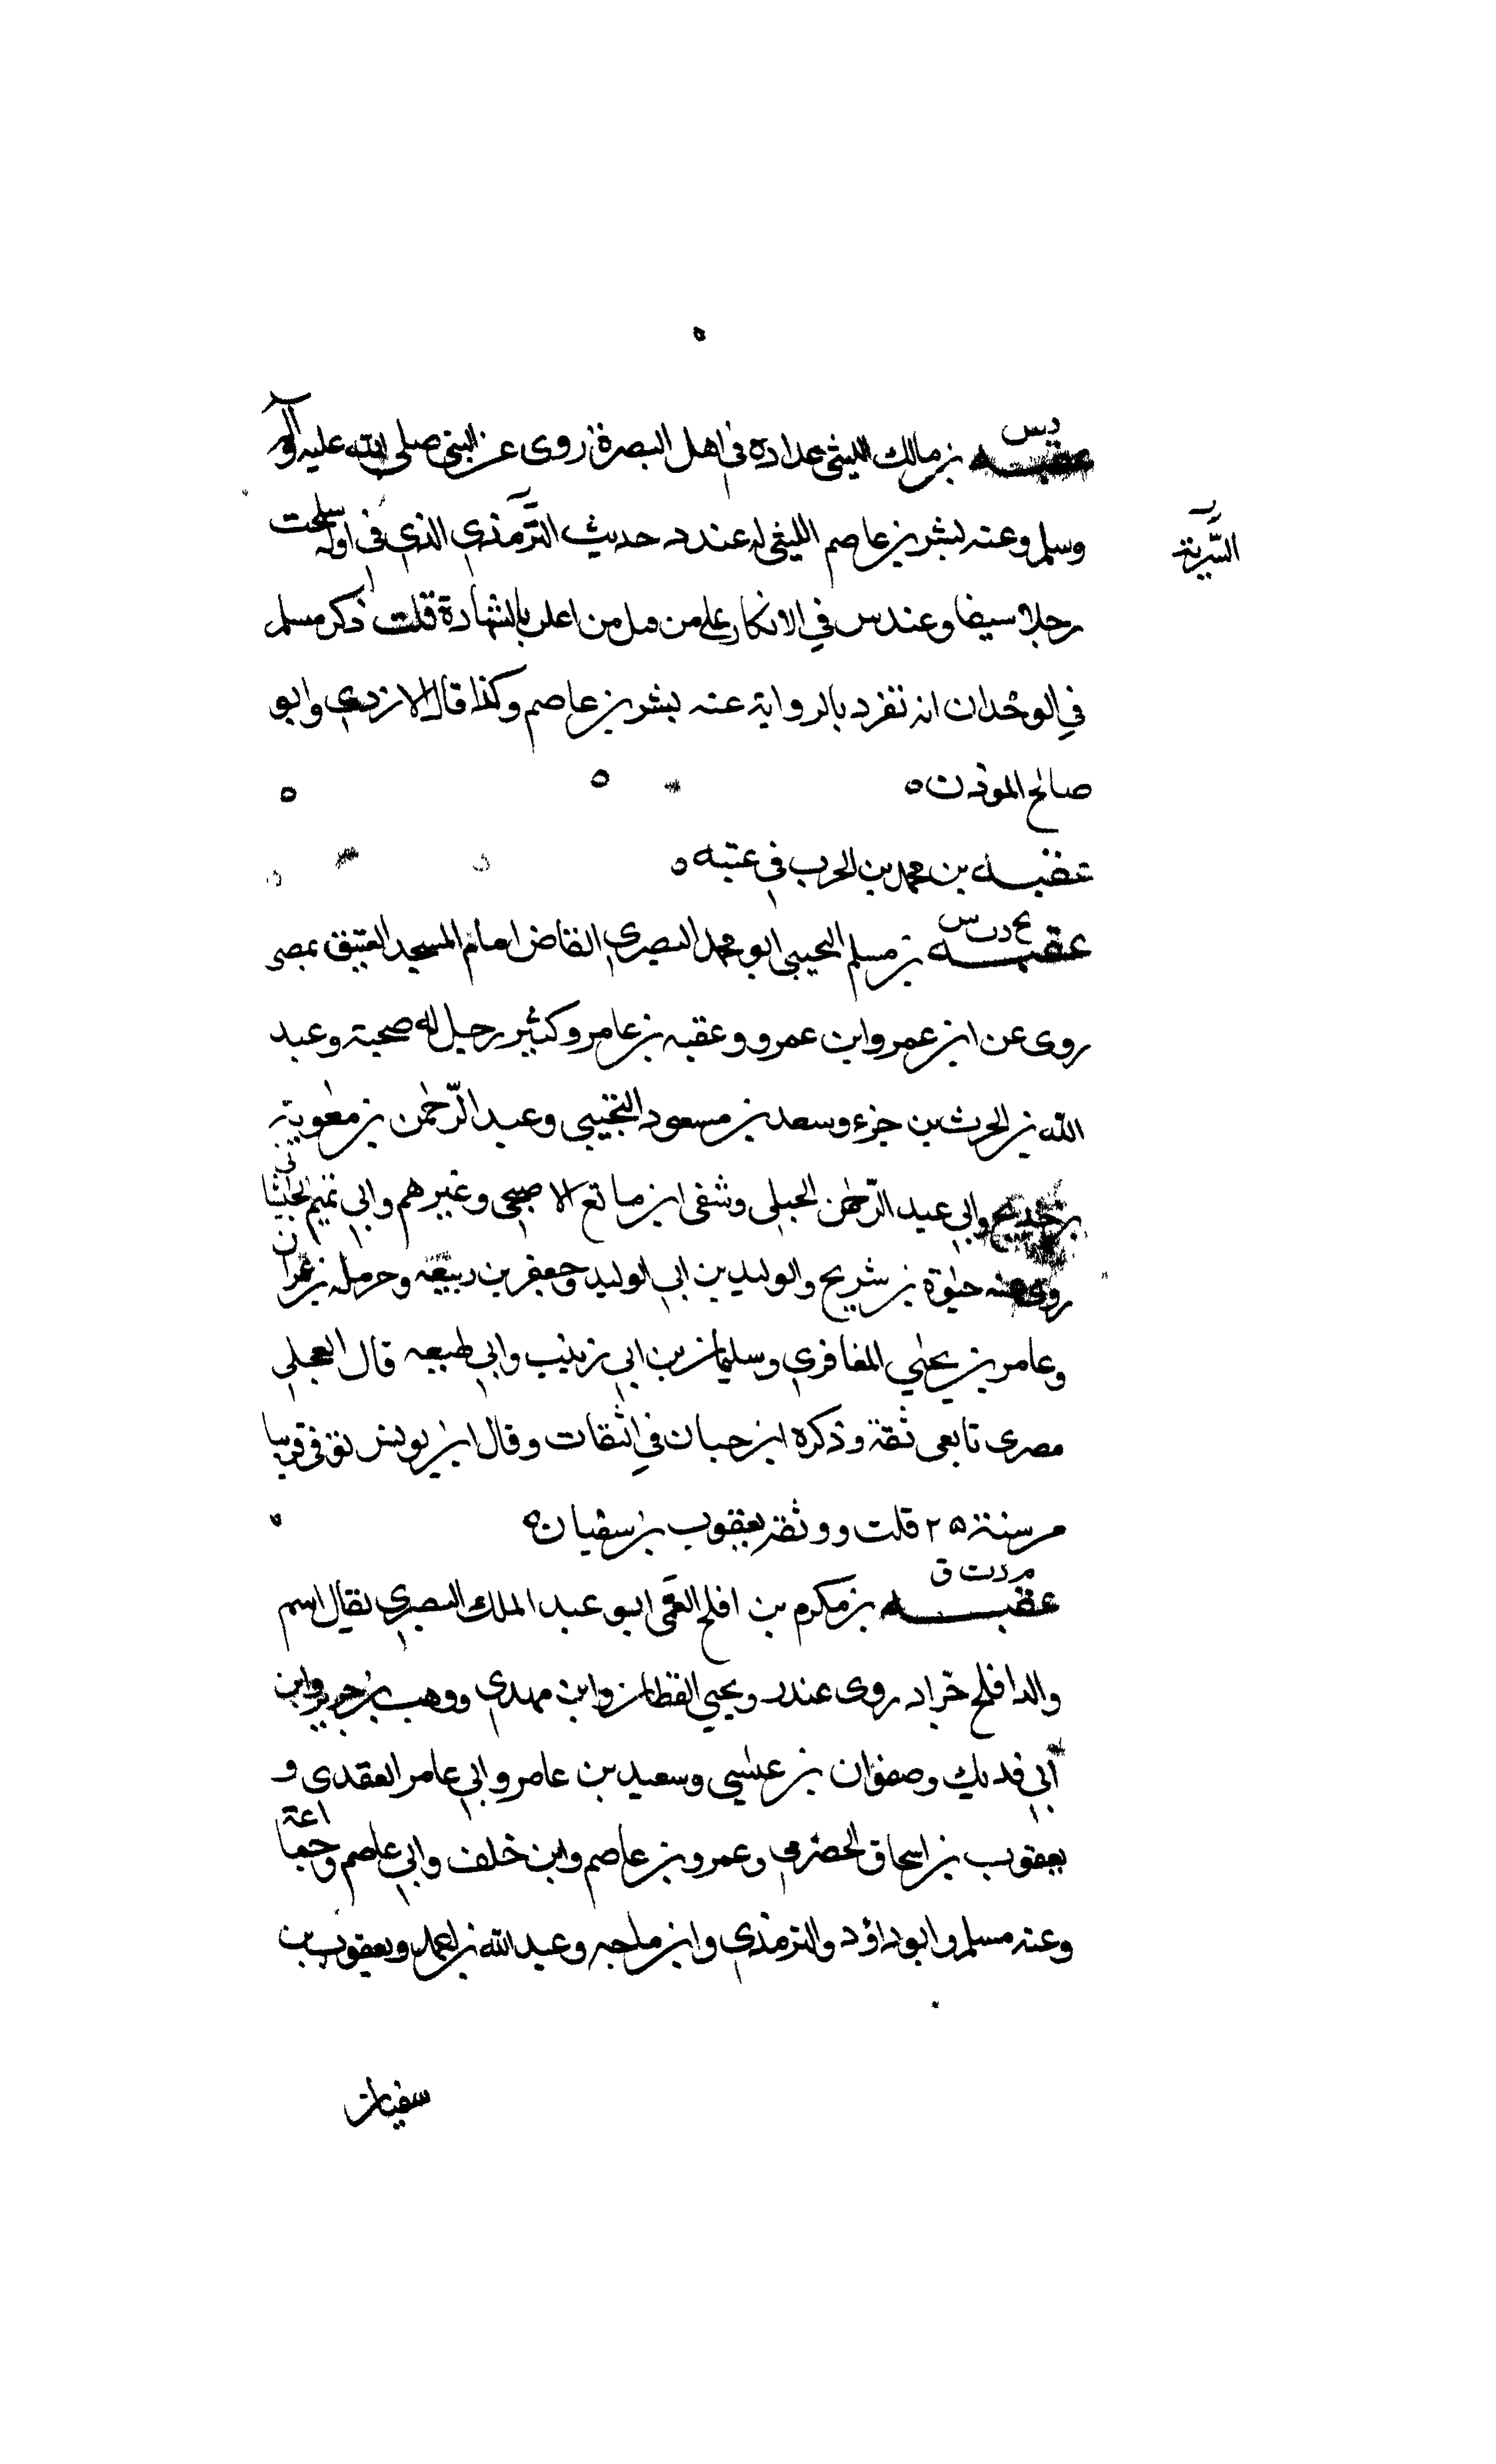 د س
عقبه بن مالك الليثي عداده في اهل البصرة روى عن النبي صلى الله عليه وآله
وسلم وعنه بشر بن عاصم الليثي له عند د حديث الترمذي الذي في اوله سلحت
السرية
رجلا سيفا وعند س في الانكار على من قتل من اعلن بالشهادة قلت ذكر مسلم
في الوحدان انه تفرد بالرواية عنه بشر بن عاصم وكذا قال الازدي وابو
صالح المؤذن ٥
عقبه بن محمد بن الحرث في عتبه ٥
بخ د ت س
عقبه بن مسلم التجيبي ابو محمد المصري القاص امام المسجد العتيق بمصر
روى عن ابن عمر وابن عمرو وعقبه بن عامر وكثير رجل له صحبة وعبد
الله بن الحرث بن جزء وسعد بن مسعود التجيبي وعبد الرحمن بن معوية
بن خديج وابي عبد الرحمن الحبلي وشفي ابن ماتع الاصبحي وغيرهم وابي تميم الجيشاني
روى عنه حيوة بن شريح والوليد بن ابي الوليد وجعفر بن ربيعه وحرمله بن عمران
وعامر بن يحيي المعافري وسليمان بن ابي زينب وابي لهيعه قال العجلي
مصرى تابعى ثقة وذكره ابن حبان في الثقات وقال ابن يونس توفى قريبا
من سنة ٢٥ قلت ووثقه يعقوب بن سفيان ٥
م د ت ق
عقبه بن مكرم بن افلح العمي ابو عبد الملك البصري يقال اسم
والد افلح جراد روى غندر ويحيي القطان وابن مهدي ووهب بن جرير وابن
ابي فديك وصفوان بن عيسي وسعيد بن عامر وابي عامر العقدي و
يعقوب بن اسحاق الحضرمي وعمرو بن عاصم وابن خلف وابي عاصم وجماعة
وعنه مسلم وابو داؤد والترمذي وابن ماجه وعبد الله بن احمد ويعقوب بن
سفيان